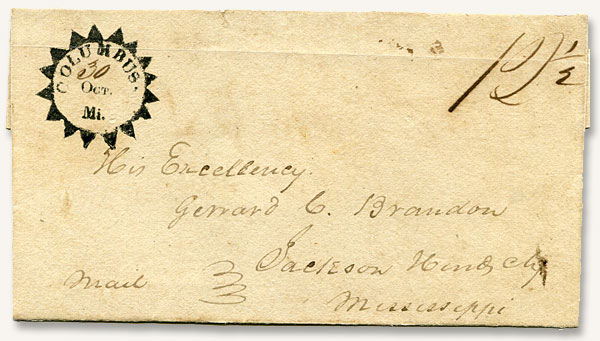 COLUMBUS.
30
OCT.
Mi.
12½
His Excellency.
Gerrard C. Brandon
Jackson Hinds Cty
Mississippi
Mail